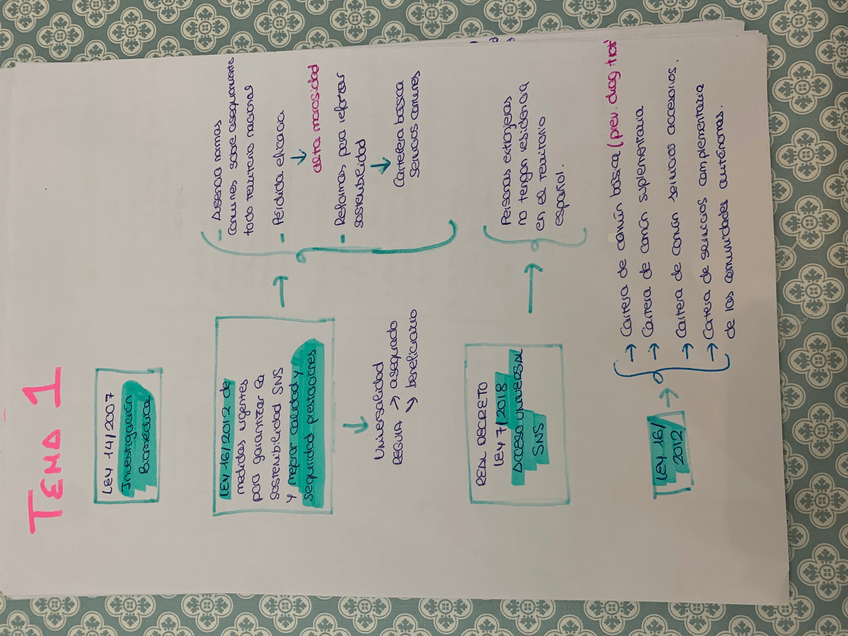 TEMA 1
LEY 14/2007
Investigación
Biomédica
LEY 16/2012 de
medidas urgentes
para garantizar la
sostenibilidad SNS
y mejorar calidad y
seguridad prestaciones
→
- Asienta normas
comunes sobre aseguramiento
todo territorio nacional
- Pérdida eficacia
↓
alta morosidad
- Reformas para reforzar
sostenibilidad
↓
Cartera básica
servicios comunes
↓
Universalidad
REGULA → asegurado
↘ beneficiario
REAL DECRETO
LEY 7/2018
Acceso UNIVERSAL
SNS
→
Personas extranjeras
no tengan residencia
en el territorio
español.
LEY 16/
2012
→
→ Cartera de común básica (prev. diag trat
→ Cartera de común suplementaria
→ Cartera de común servicios accesorios.
→ Cartera de servicios complementaria
de las comunidades autónomas.